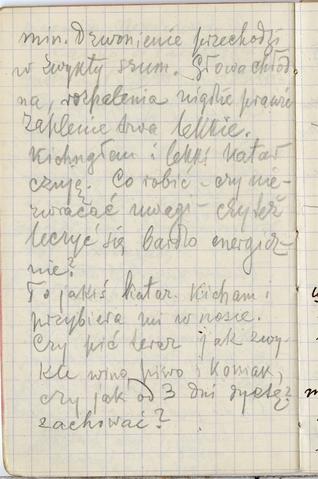 min. Dzwonienie przechodzi
w zwykły szum. Głowa chłod-
na, rozpalenia nigdzie prawie
zaplenie trwa lekkie.
Kichnąłam i lekki katar
czuję. Co robić - czy nie
zwracać uwagi - czy też
leczyć się bardzo energicz-
nie?
To jakiś katar. Kicham i
przybiera mi w nosie.
Czy pić teraz jak zwy-
kle wino piwo i koniak,
czy jak od 3 dni dyetę
zachować?